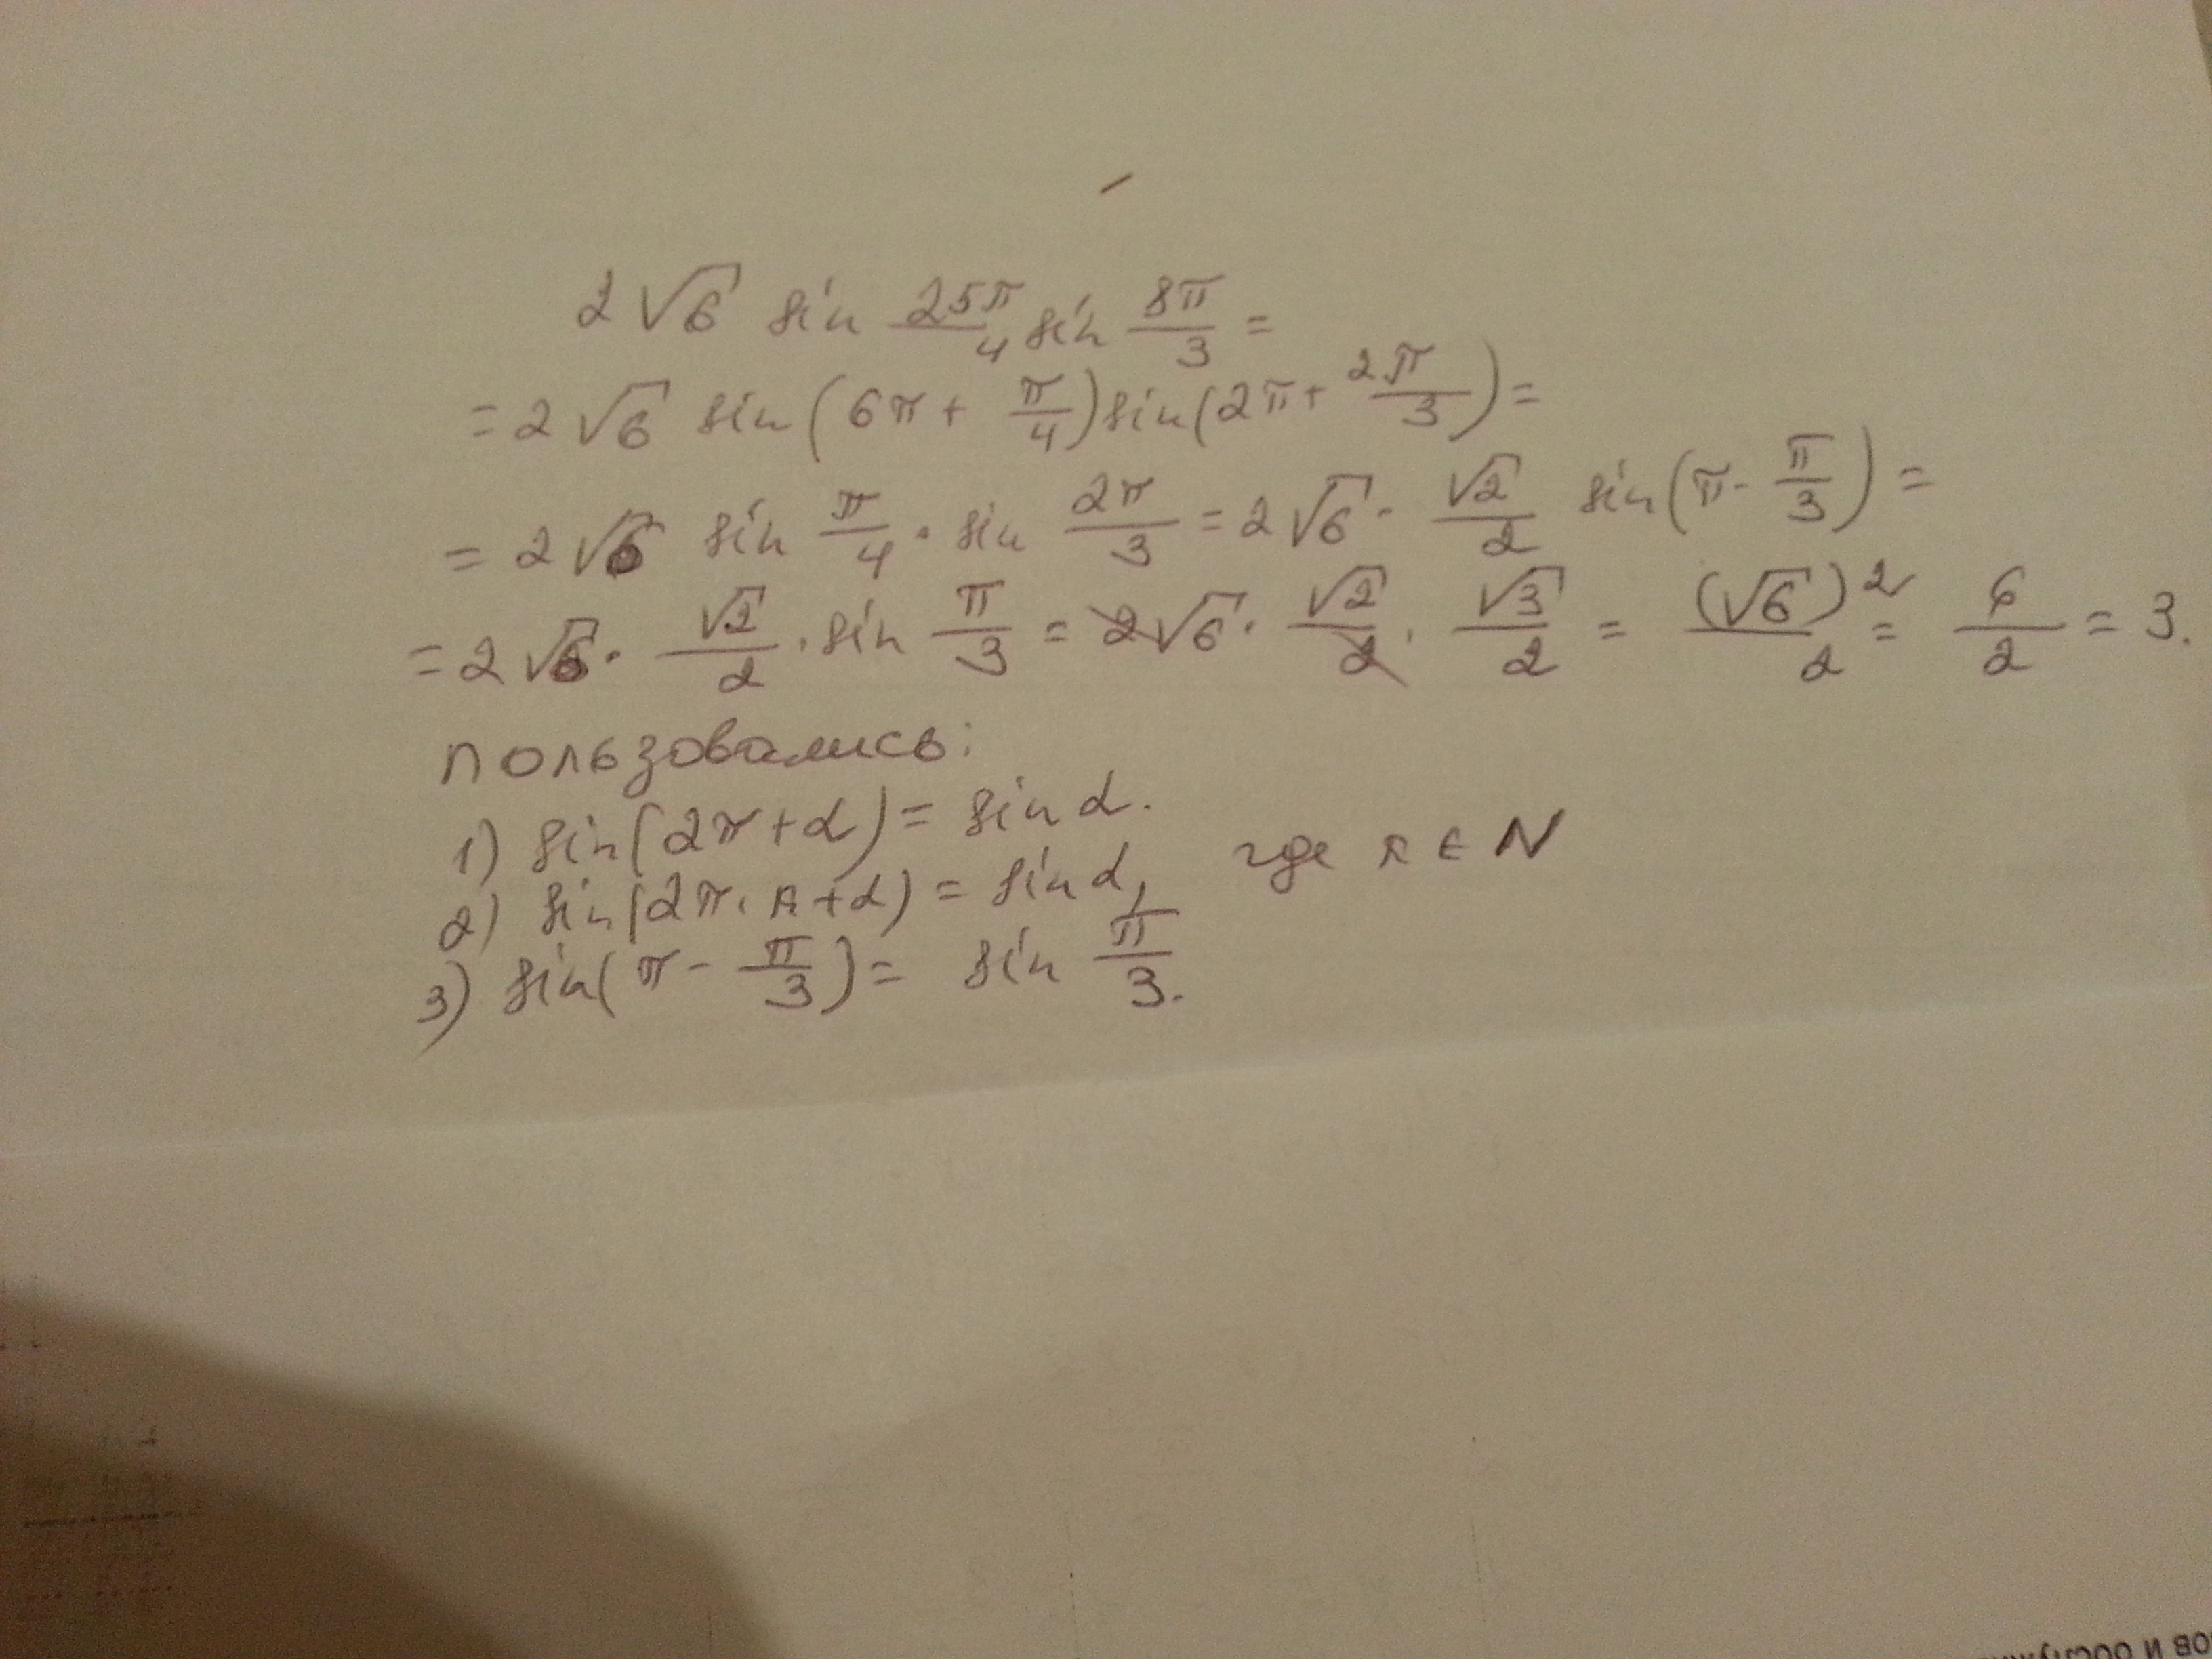 2√6 sin 25π/4 sin 8π/3 =
= 2√6 sin(6π + π/4) sin(2π + 2π/3) =
= 2√6 sin π/4 · sin 2π/3 = 2√6 · √2/2 sin(π - π/3) =
= 2√6 · √2/2 · sin π/3 = 2√6 · √2/2 · √3/2 = (√6)²/2 = 6/2 = 3.
пользовались:
1) sin(2π + α) = sin α.
2) sin(2π · n + α) = sin α, где n ∈ N
3) sin(π - π/3) = sin π/3.